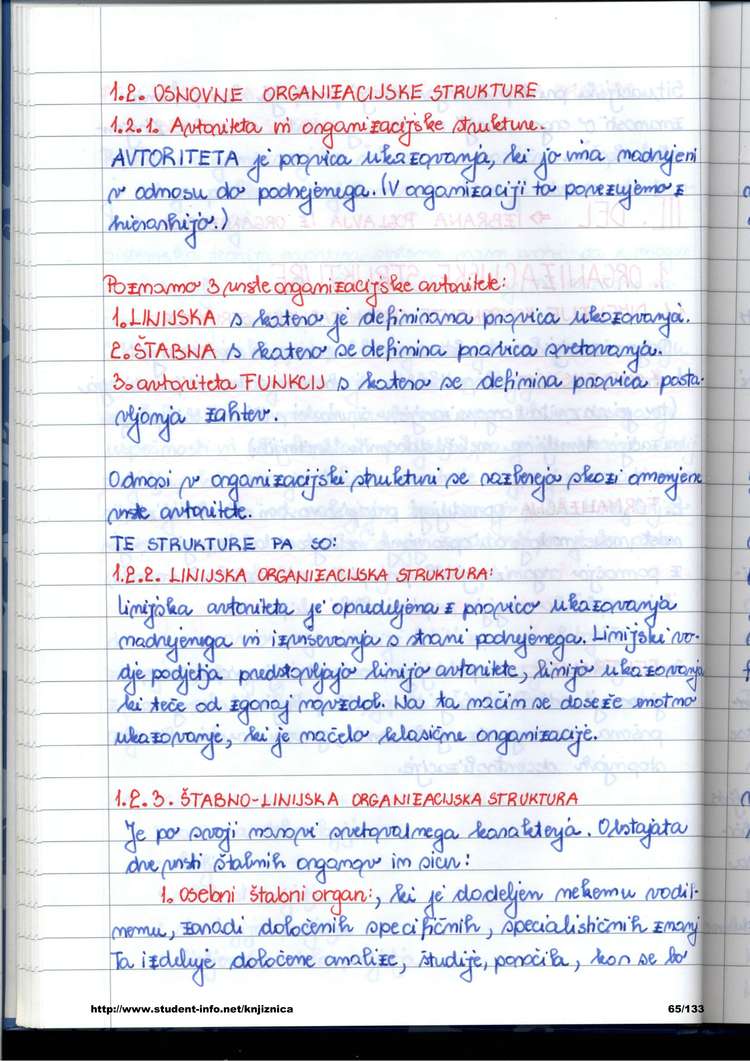 1.2. OSNOVNE ORGANIZACIJSKE STRUKTURE
1.2.1. Avtoriteta in organizacijske strukture.
AVTORITETA je pravica ukazovanja, ki jo ima nadrejeni
v odnosu do podrejenega. (V organizaciji to povezujemo z
hierarhijo.)
Poznamo 3 vrste organizacijske avtoritete:
1. LINIJSKA s katero je definirana pravica ukazovanja.
2. ŠTABNA s katero se definira pravica svetovanja.
3. avtoriteta FUNKCIJ s katero se definira pravica posta-
vljanja zahtev.
Odnosi v organizacijski strukturi se razberejo skozi omenjene
vrste avtoritete.
TE STRUKTURE PA SO:
1.2.2. LINIJSKA ORGANIZACIJSKA STRUKTURA:
Linijska avtoriteta je opredeljena z pravico ukazovanja
nadrejenega in izvrševanja s strani podrejenega. Linijski vo-
dje podjetja predstavljajo linijo avtoritete, linijo ukazovanja
ki teče od zgoraj navzdol. Na ta način se doseže enotno
ukazovanje, ki je načelo klasične organizacije.
1.2.3. ŠTABNO-LINIJSKA ORGANIZACIJSKA STRUKTURA
Je po svoji naravi svetovalnega karakterja. Obstajata
dve vrsti štabnih organov in sicer:
1. Osebni štabni organ:, ki je dodeljen nekemu vodil-
nemu, zaradi določenih specifičnih, specialističnih znanj
Ta izdeluje določene analize, študije, poročila, kar se bo
http://www.student-info.net/knjiznica
65/133